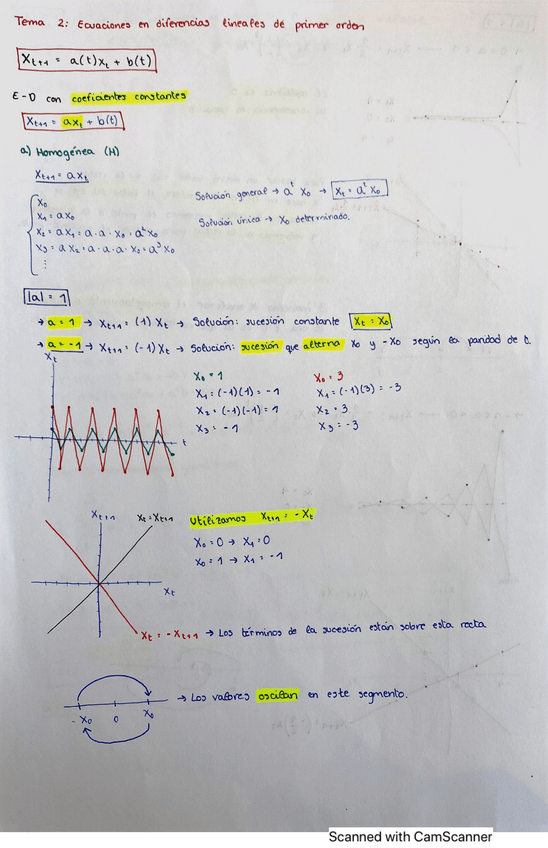 Tema 2: Ecuaciones en diferencias lineales de primer orden
Xt+1 = a(t)xt + b(t)
E-D con coeficientes constantes
Xt+1 = axt + b(t)
a) Homogénea (H)
Xt+1 = axt
Solución general → a^t x0 → Xt = a^t x0
Solución única → x0 determinado.
x0
x1 = ax0
x2 = ax1 = a·a·x0 = a²x0
x3 = ax2 = a·a·a·x0 = a³x0
⋮
|a| = 1
→ a = 1 → Xt+1 = (1) Xt → Solución: sucesión constante Xt = X0
→ a = -1 → Xt+1 = (-1) Xt → Solución: sucesión que alterna x0 y -x0 según la paridad de t.
Xt
t
X0 = 1
X1 = (-1)(1) = -1
X2 = (-1)(-1) = 1
X3 = -1
X0 = 3
X1 = (-1)(3) = -3
X2 = 3
X3 = -3
Xt+1
Xt = Xt+1
Utilizamos Xt+1 = -Xt
X0 = 0 → X1 = 0
X0 = 1 → X1 = -1
Xt
Xt = -Xt+1 → Los términos de la sucesión están sobre esta recta
-X0 0 X0
→ Los valores oscilan en este segmento.
Scanned with CamScanner